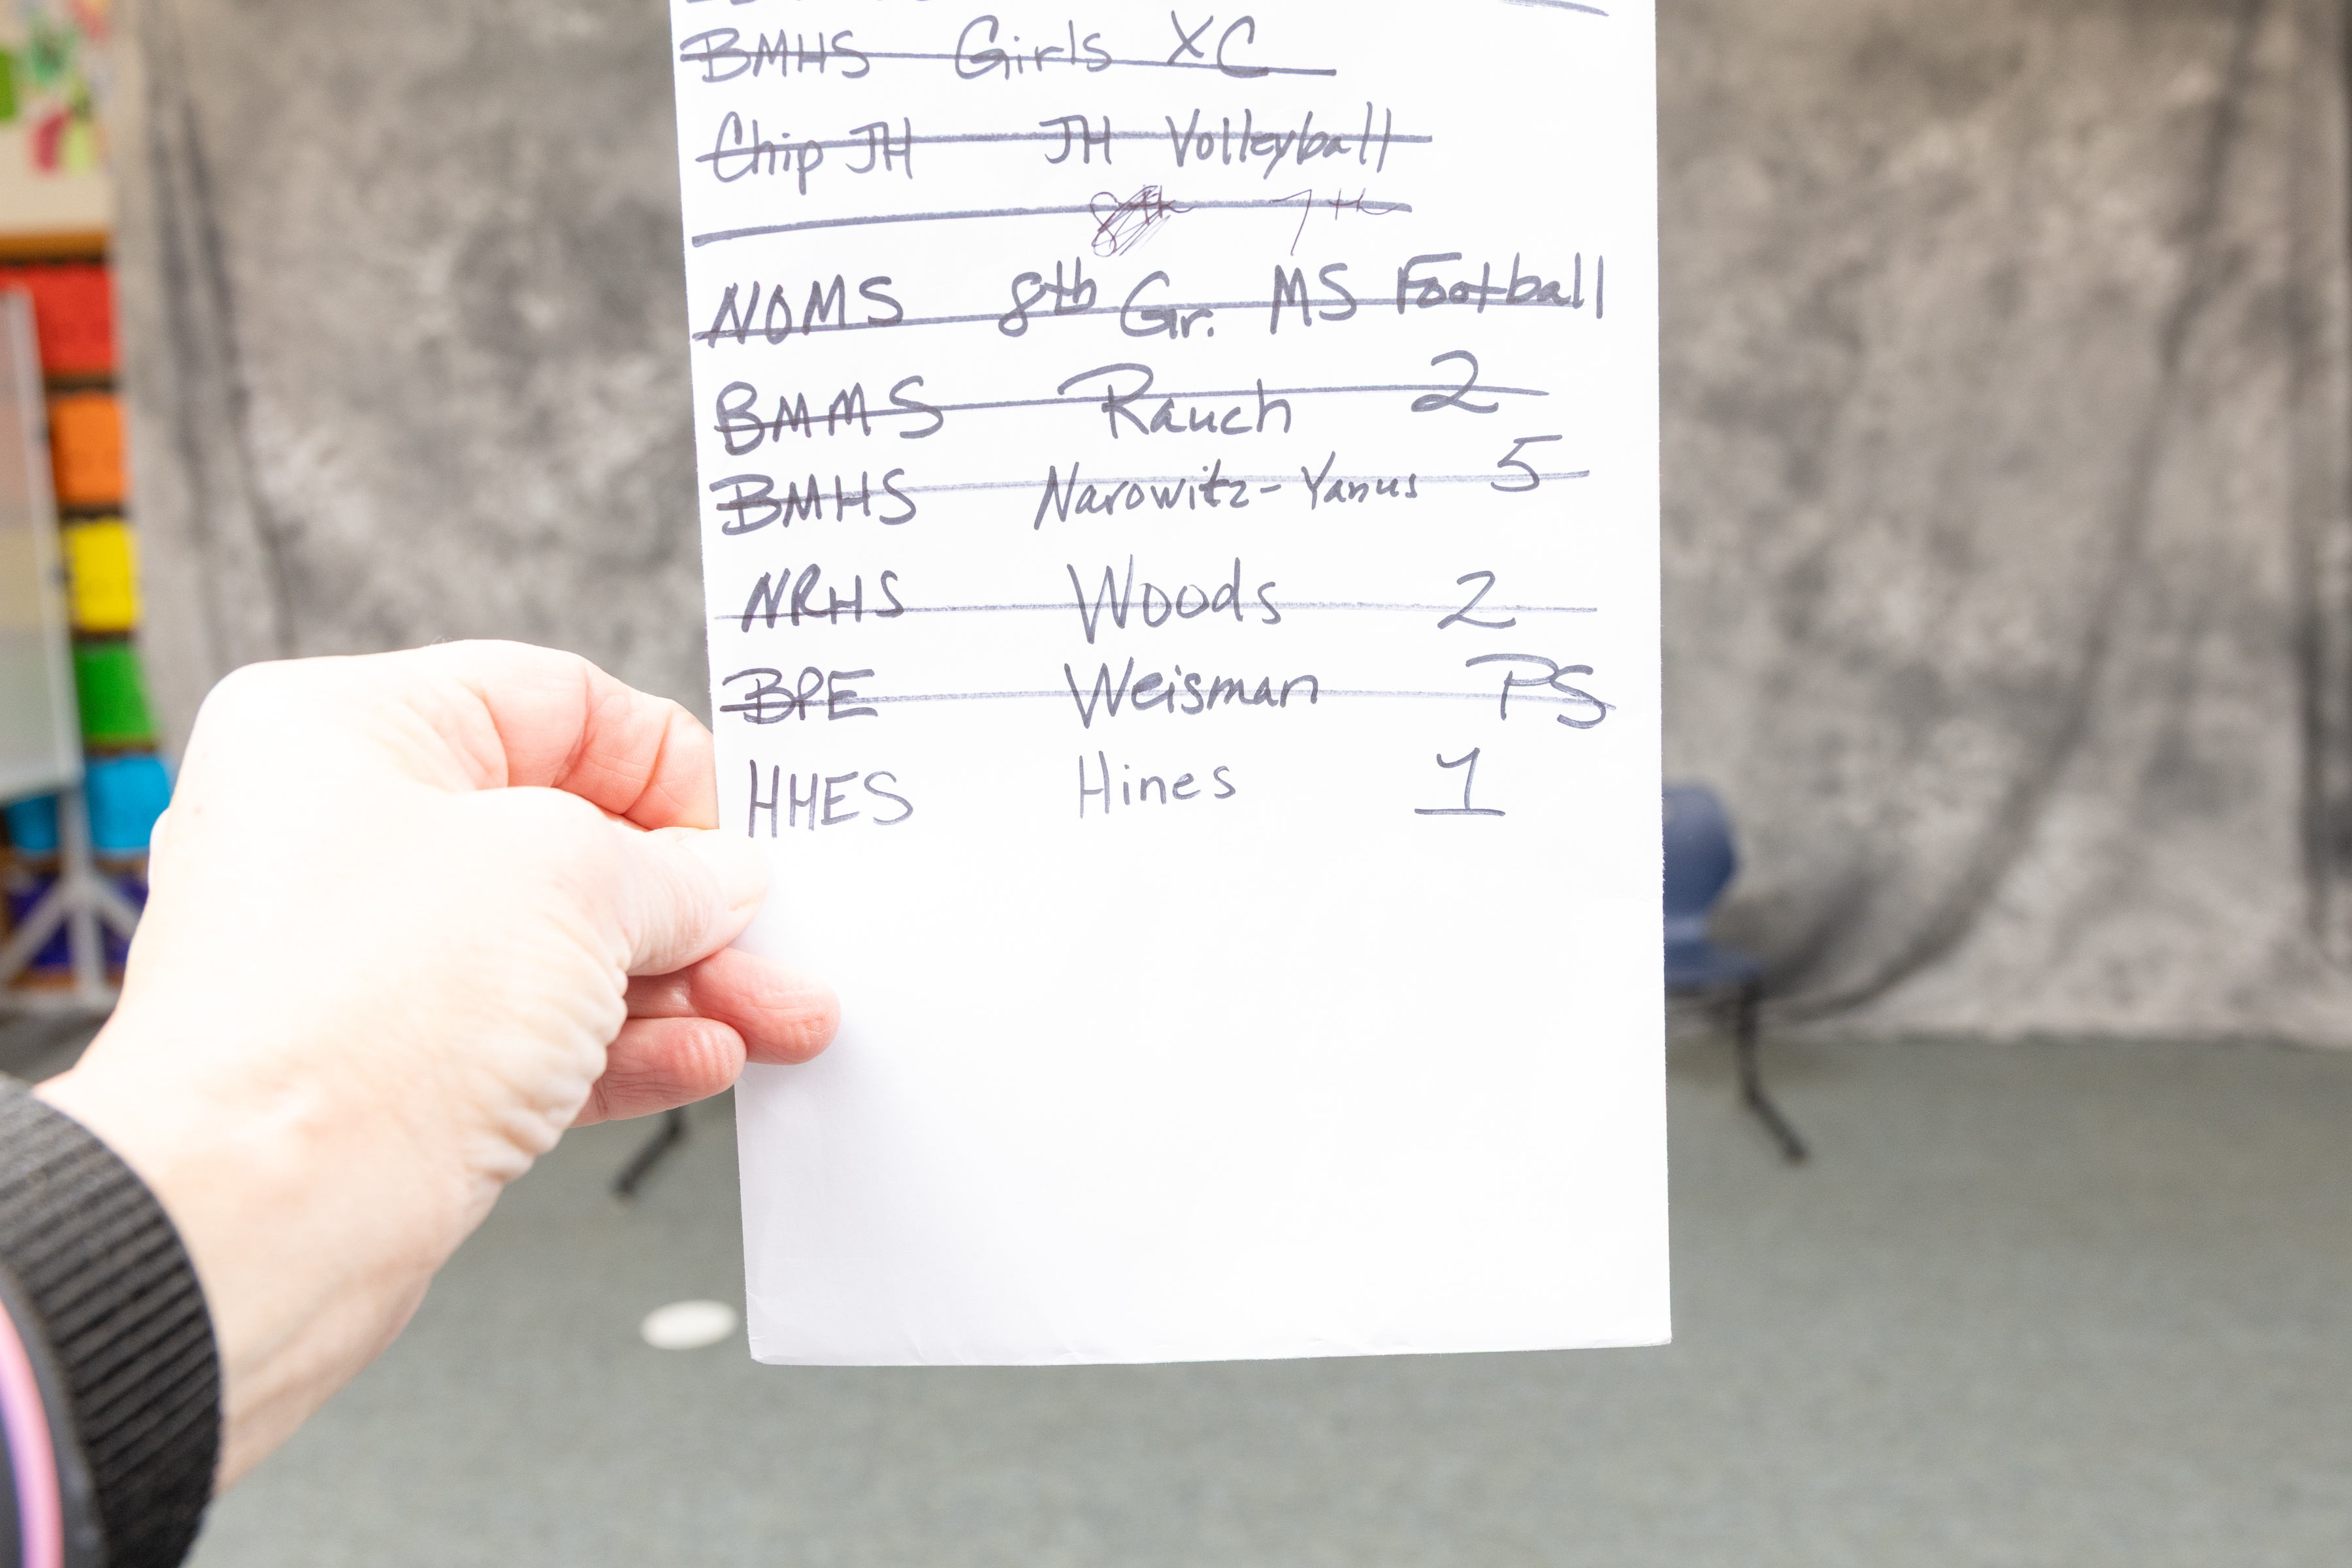 BMHS Girls XC
Chip JH JH Volleyball
8th 7th
NOMS 8th Gr. MS Football
BMMS Rauch 2
BMHS Narowitz-Yanus 5
NRHS Woods 2
BPE Weisman PS
HHES Hines 1